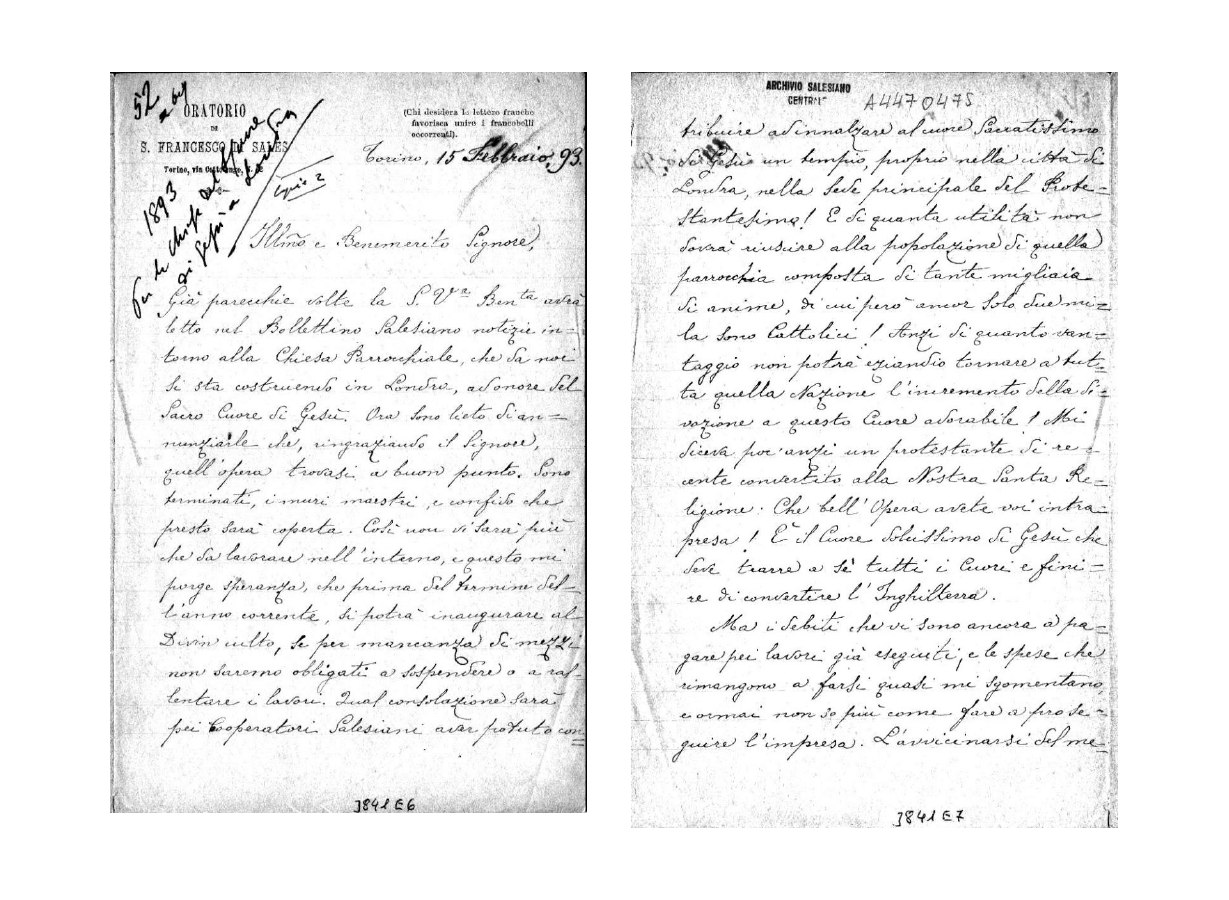 52
ORATORIO
DI
S. FRANCESCO DI SALES
Torino, via Cottolengo, N. 32
(Chi desidera le lettere franche
favorisca unire i francobolli
occorrenti).
Torino, 15 Febbraio, 93.
1893
Per la chiesa del S. Cuore
di Gesù a Londra
copie 2
Illmo e Benemerito Signore,
Già parecchie volte la S. Va Benta avrà
letto nel Bollettino Salesiano notizie in=
torno alla Chiesa Parrocchiale, che da noi
si sta costruendo in Londra, ad onore del
Sacro Cuore di Gesù. Ora sono lieto di an=
nunziarle che, ringraziando il Signore,
quell'opera trovasi a buon punto. Sono
terminati, i muri maestri, e confido che
presto sarà coperta. Così non vi sarà più
che da lavorare nell'interno, e questo mi
porge speranza, che prima del termine del=
l'anno corrente, si potrà inaugurare al
Divin culto, se per mancanza di mezzi
non saremo obligati a sospendere o a ral=
lentare i lavori. Qual consolazione sarà
pei Cooperatori Salesiani aver potuto con=
3841E6
ARCHIVIO SALESIANO
CENTRALE
A4470475
tribuire ad innalzare al cuore Sacratissimo
di Gesù un tempio, proprio nella città di
Londra, nella Sede principale del Prote=
stantesimo! E di quanta utilità non
dovrà riuscire alla popolazione di quella
parrocchia composta di tante migliaia
di anime, di cui però ancor solo due mi=
la sono Cattolici! Anzi di quanto van=
taggio non potrà eziandio tornare a tut=
ta quella Nazione l'incremento della di=
vozione a questo Cuore adorabile! Mi
diceva poc'anzi un protestante di re=
cente convertito alla Nostra Santa Re=
ligione: Che bell'Opera avete voi intra=
presa! È il Cuore dolcissimo di Gesù che
deve trarre a sè tutti i Cuori e fini=
re di convertire l'Inghilterra.
Ma i debiti che vi sono ancora a pa=
gare pei lavori già eseguiti, e le spese che
rimangono a farsi quasi mi sgomentano,
e ormai non so più come fare a prose=
guire l'impresa. L'avvicinarsi del me=
3841E7